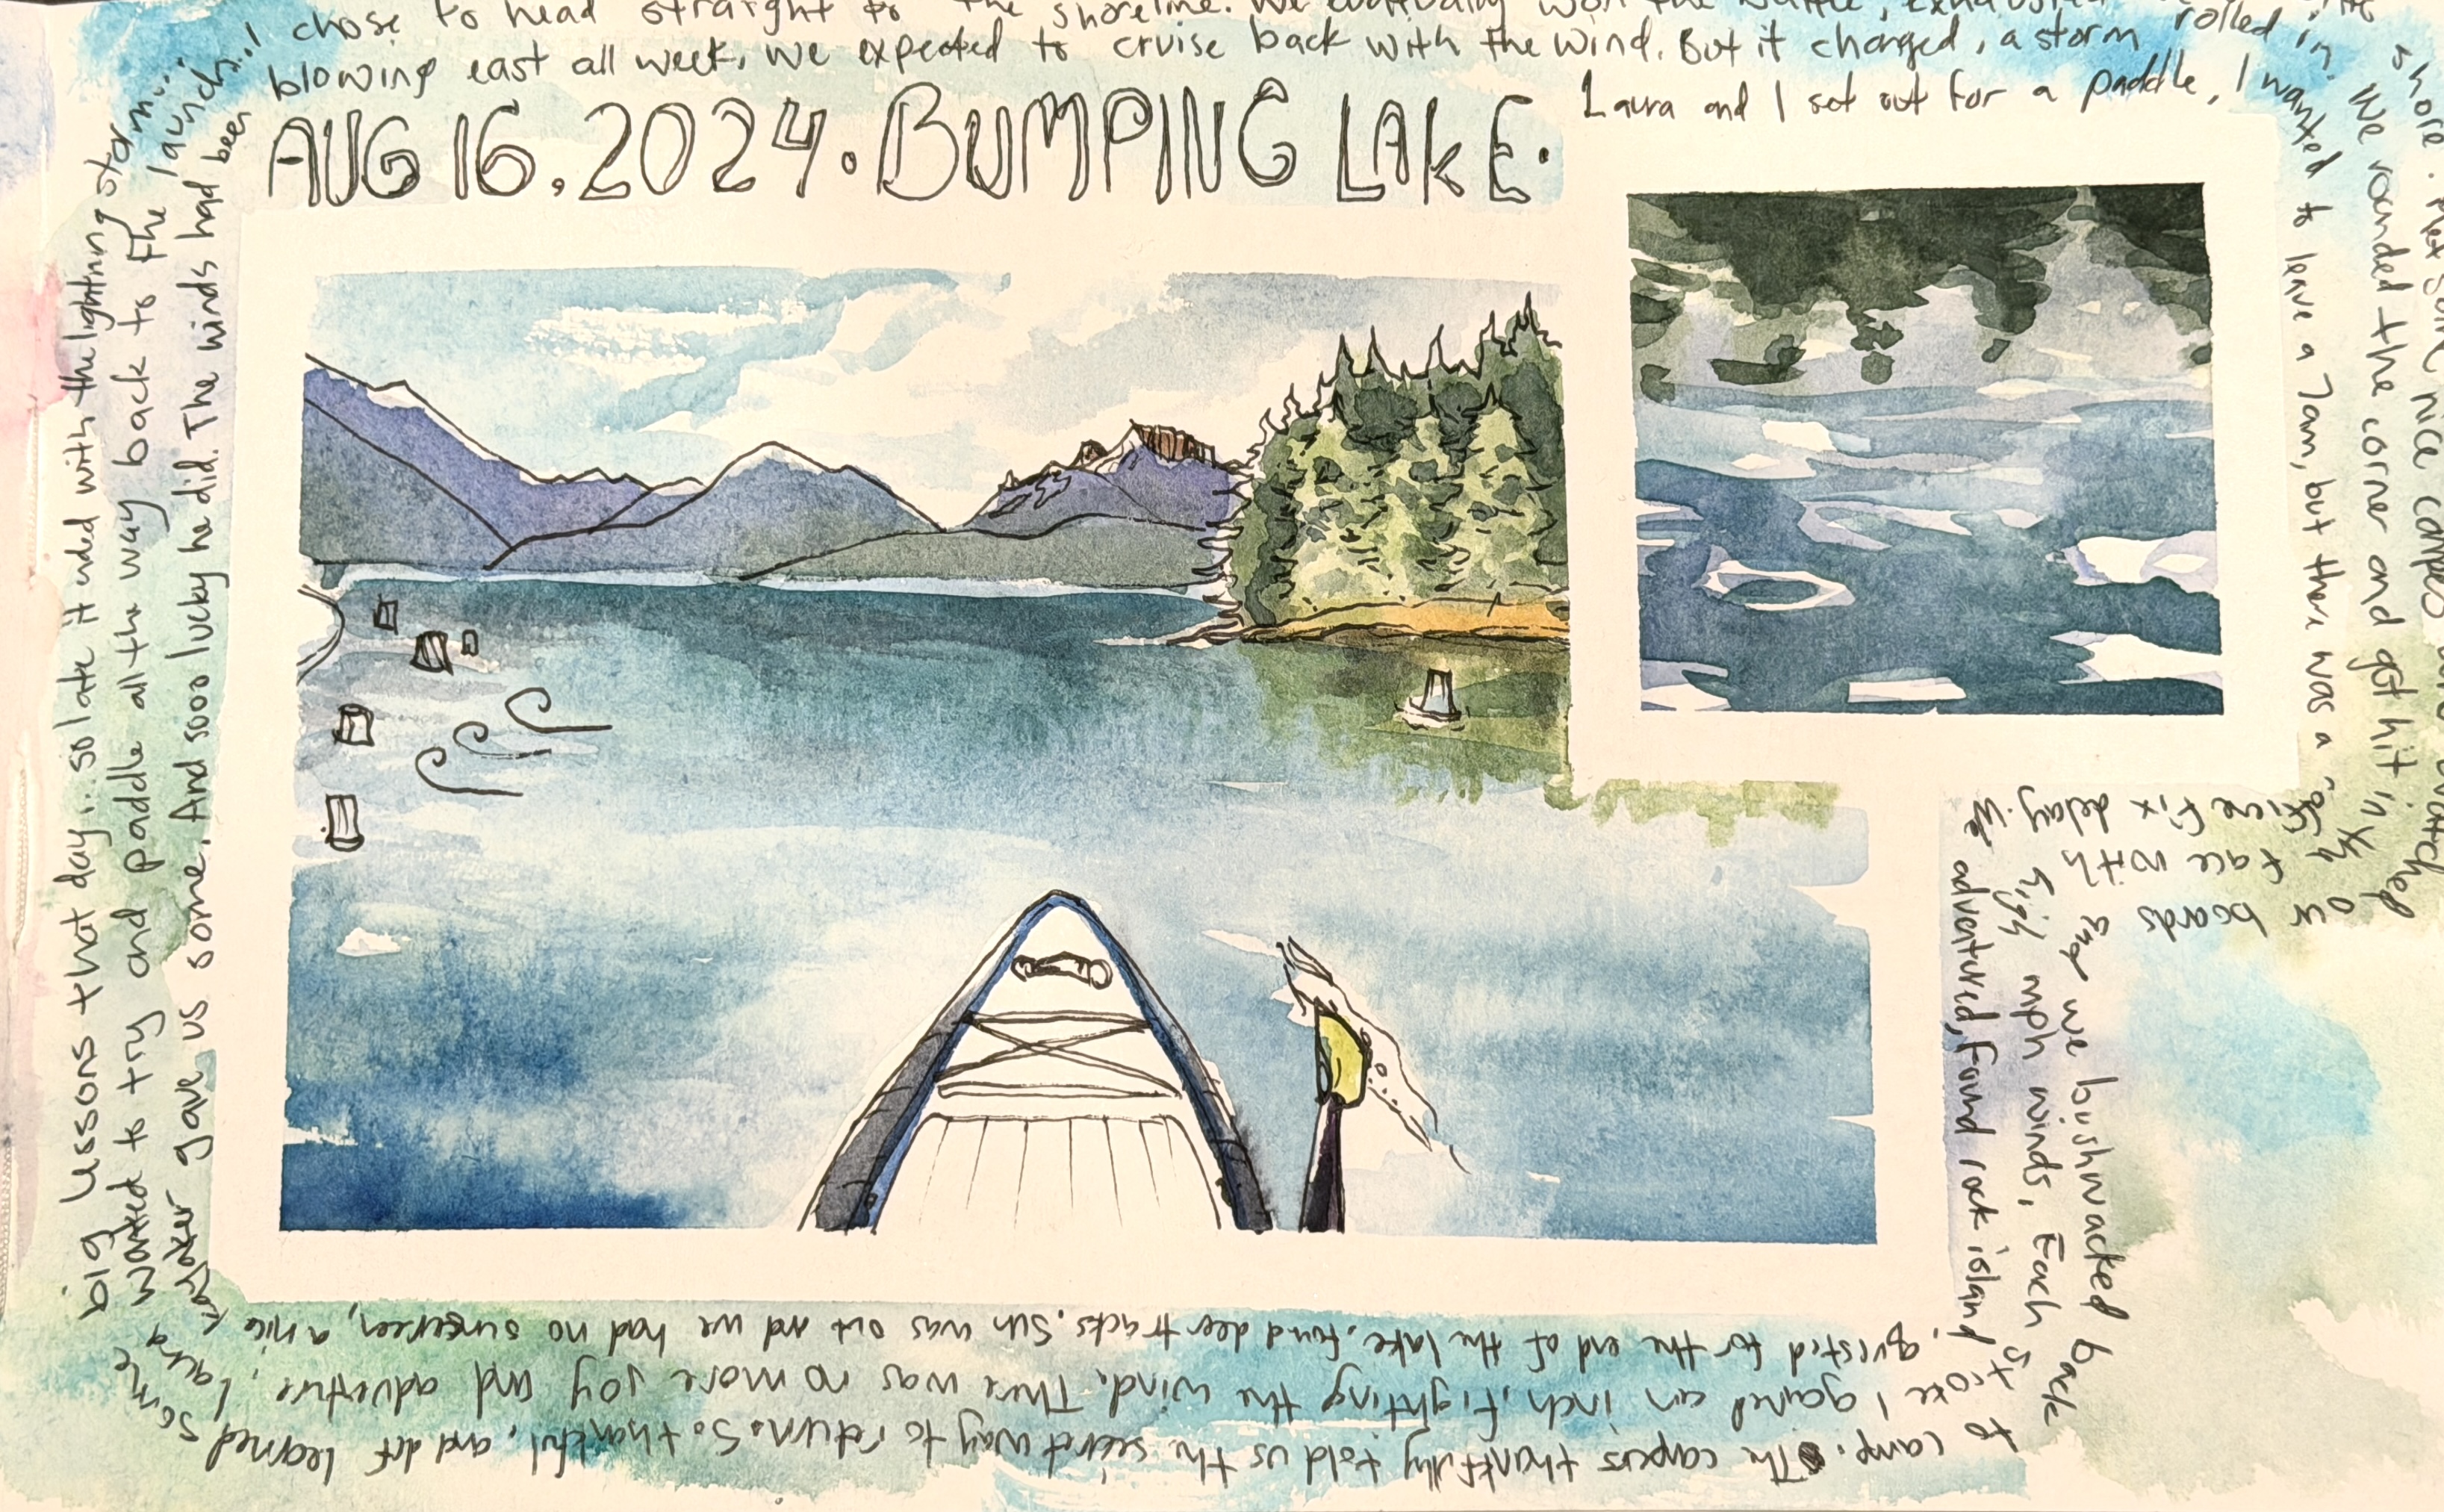 AUG 16, 2024. BUMPING LAKE.
Laura and I set out for a paddle, I wanted
to leave a 7am, but there was a
fix delay. We
adventured, found rock island
quested for the end of the lake, found deer tracks. Sun was out and we had no sunscreen, a nice
Kayaker gave us some. And sooo lucky he did. The winds had been
blowing east all week, we expected to cruise back with the wind. But it changed, a storm rolled in.
We rounded the corner and got hit in
the face with
high mph winds, Each stroke
I gained an inch, fighting the wind. There was no more joy and adventure. Laura
wanted to try and paddle all the way back to the launch...
I chose to head straight to the shoreline. We eventually won the battle, exhausted
shore. Met some nice campers and ditched
our boards
and we bushwacked back
to camp. The campers thankfully told us the secret way to return. So thankful, and def learned some
big lessons that day... so late it ended with the lightning storm...